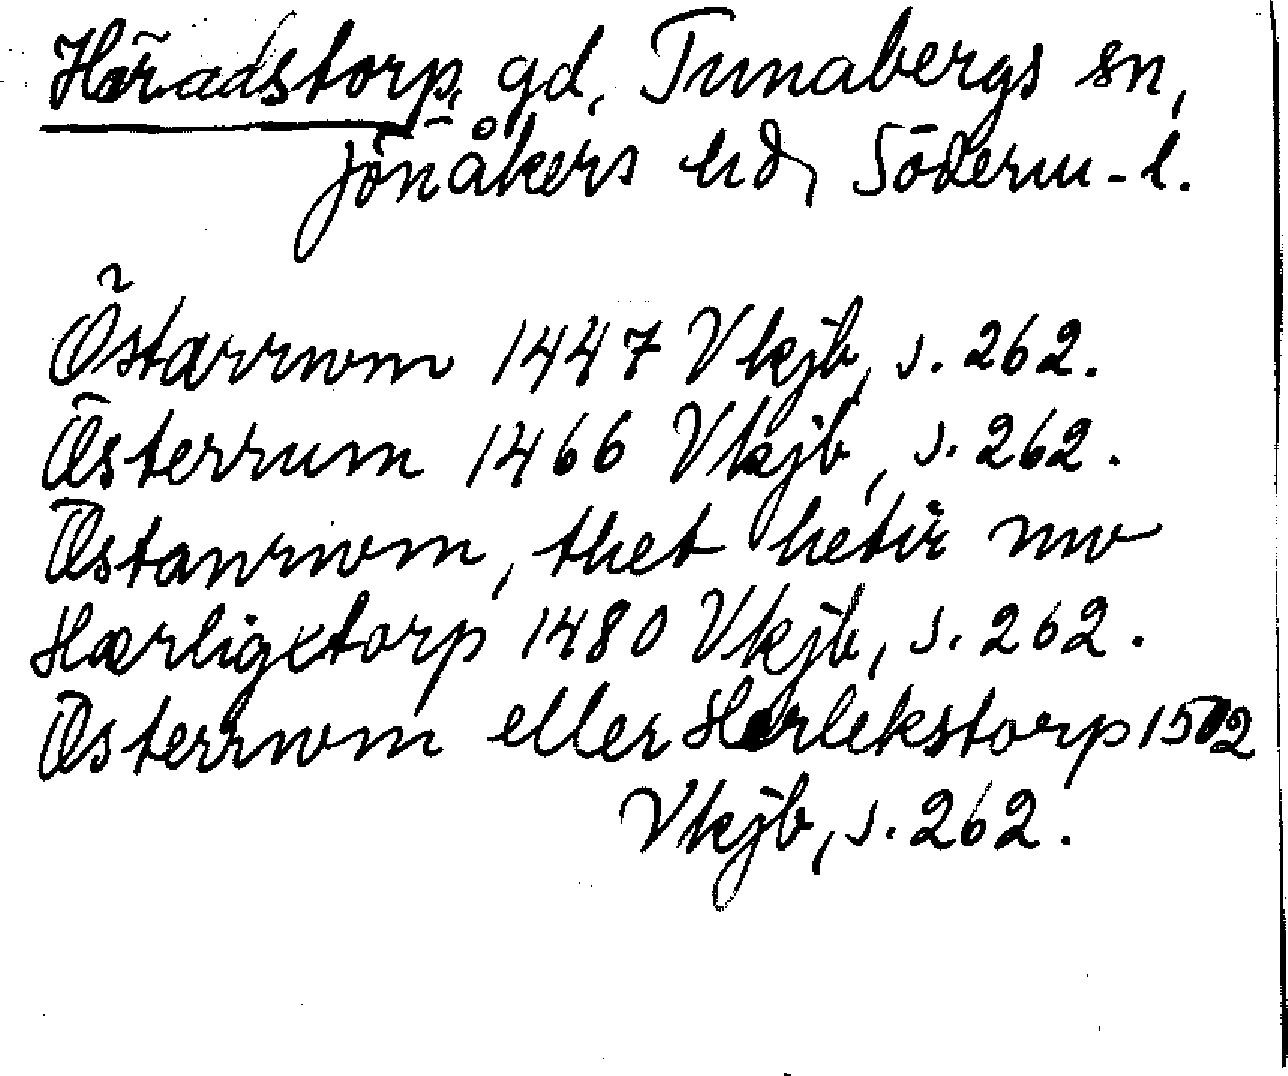 Häradstorp, gd, Tunabergs sn,
Jönåkers hd, Söderm-l.
Östarrwm 1447 Vkjb, s. 262.
Österrum 1466 Vkjb, s. 262.
Östanrwm, thet hetir nw
Hærligxtorp 1480 Vkjb, s. 262.
Österrwm eller Herlekstorp 1502
Vkjb, s. 262.